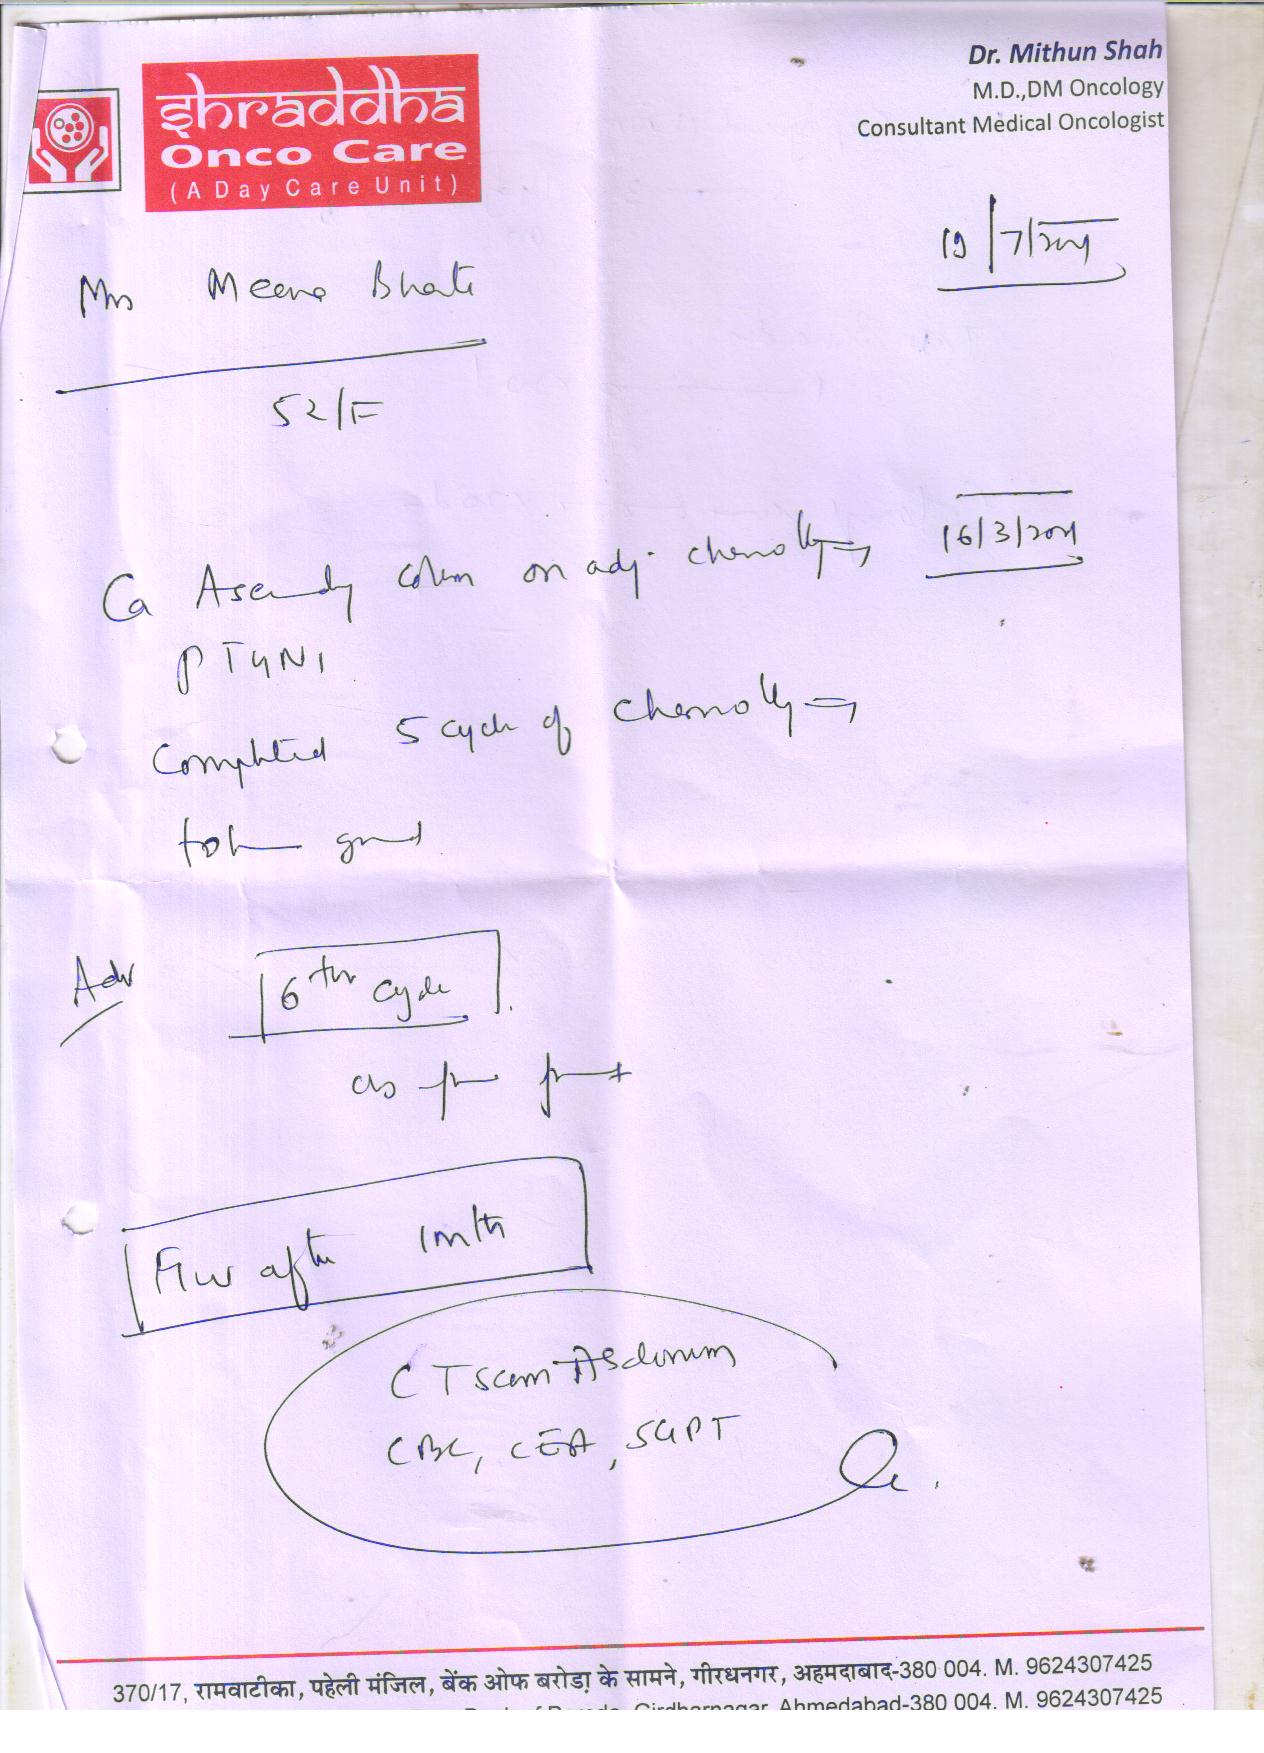 Dr. Mithun Shah
M.D.,DM Oncology
Consultant Medical Oncologist
shraddha
Onco Care
(A Day Care Unit)
19/7/2011
Mrs Meena Bhati
52/F
Ca Ascendy colon on adj. chemotly → 16/3/2011
pT4N1
Completed 5 cycle of chemotly →
Adv 6th cycle
as per
after 1 mth
CT scan Abdomen
CBC, CEA, SGPT
370/17, रामवाटीका, पहेली मंजिल, बेंक ओफ बरोडा़ के सामने, गीरधनगर, अहमदाबाद-380 004. M. 9624307425
Girdharnagar, Ahmedabad-380 004. M. 9624307425